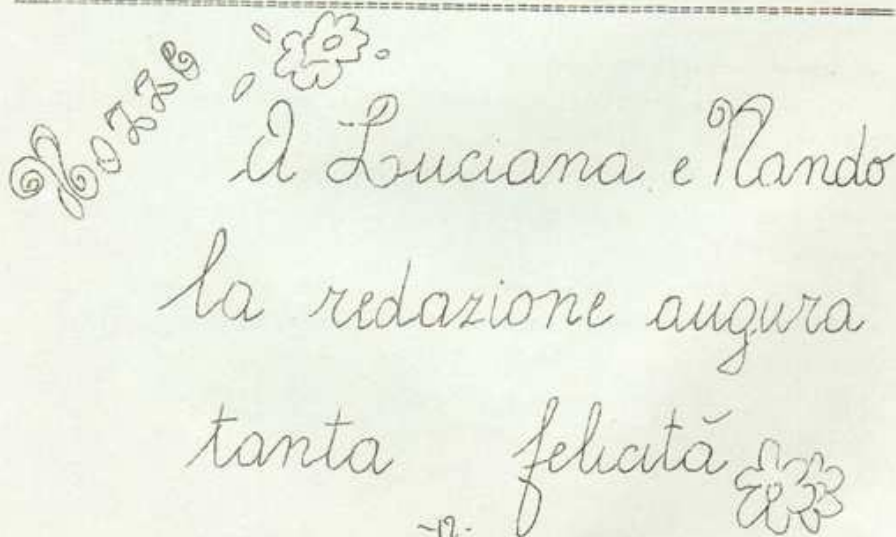 Nozze
A Luciana e Nando
la redazione augura
tanta felicità
-12-